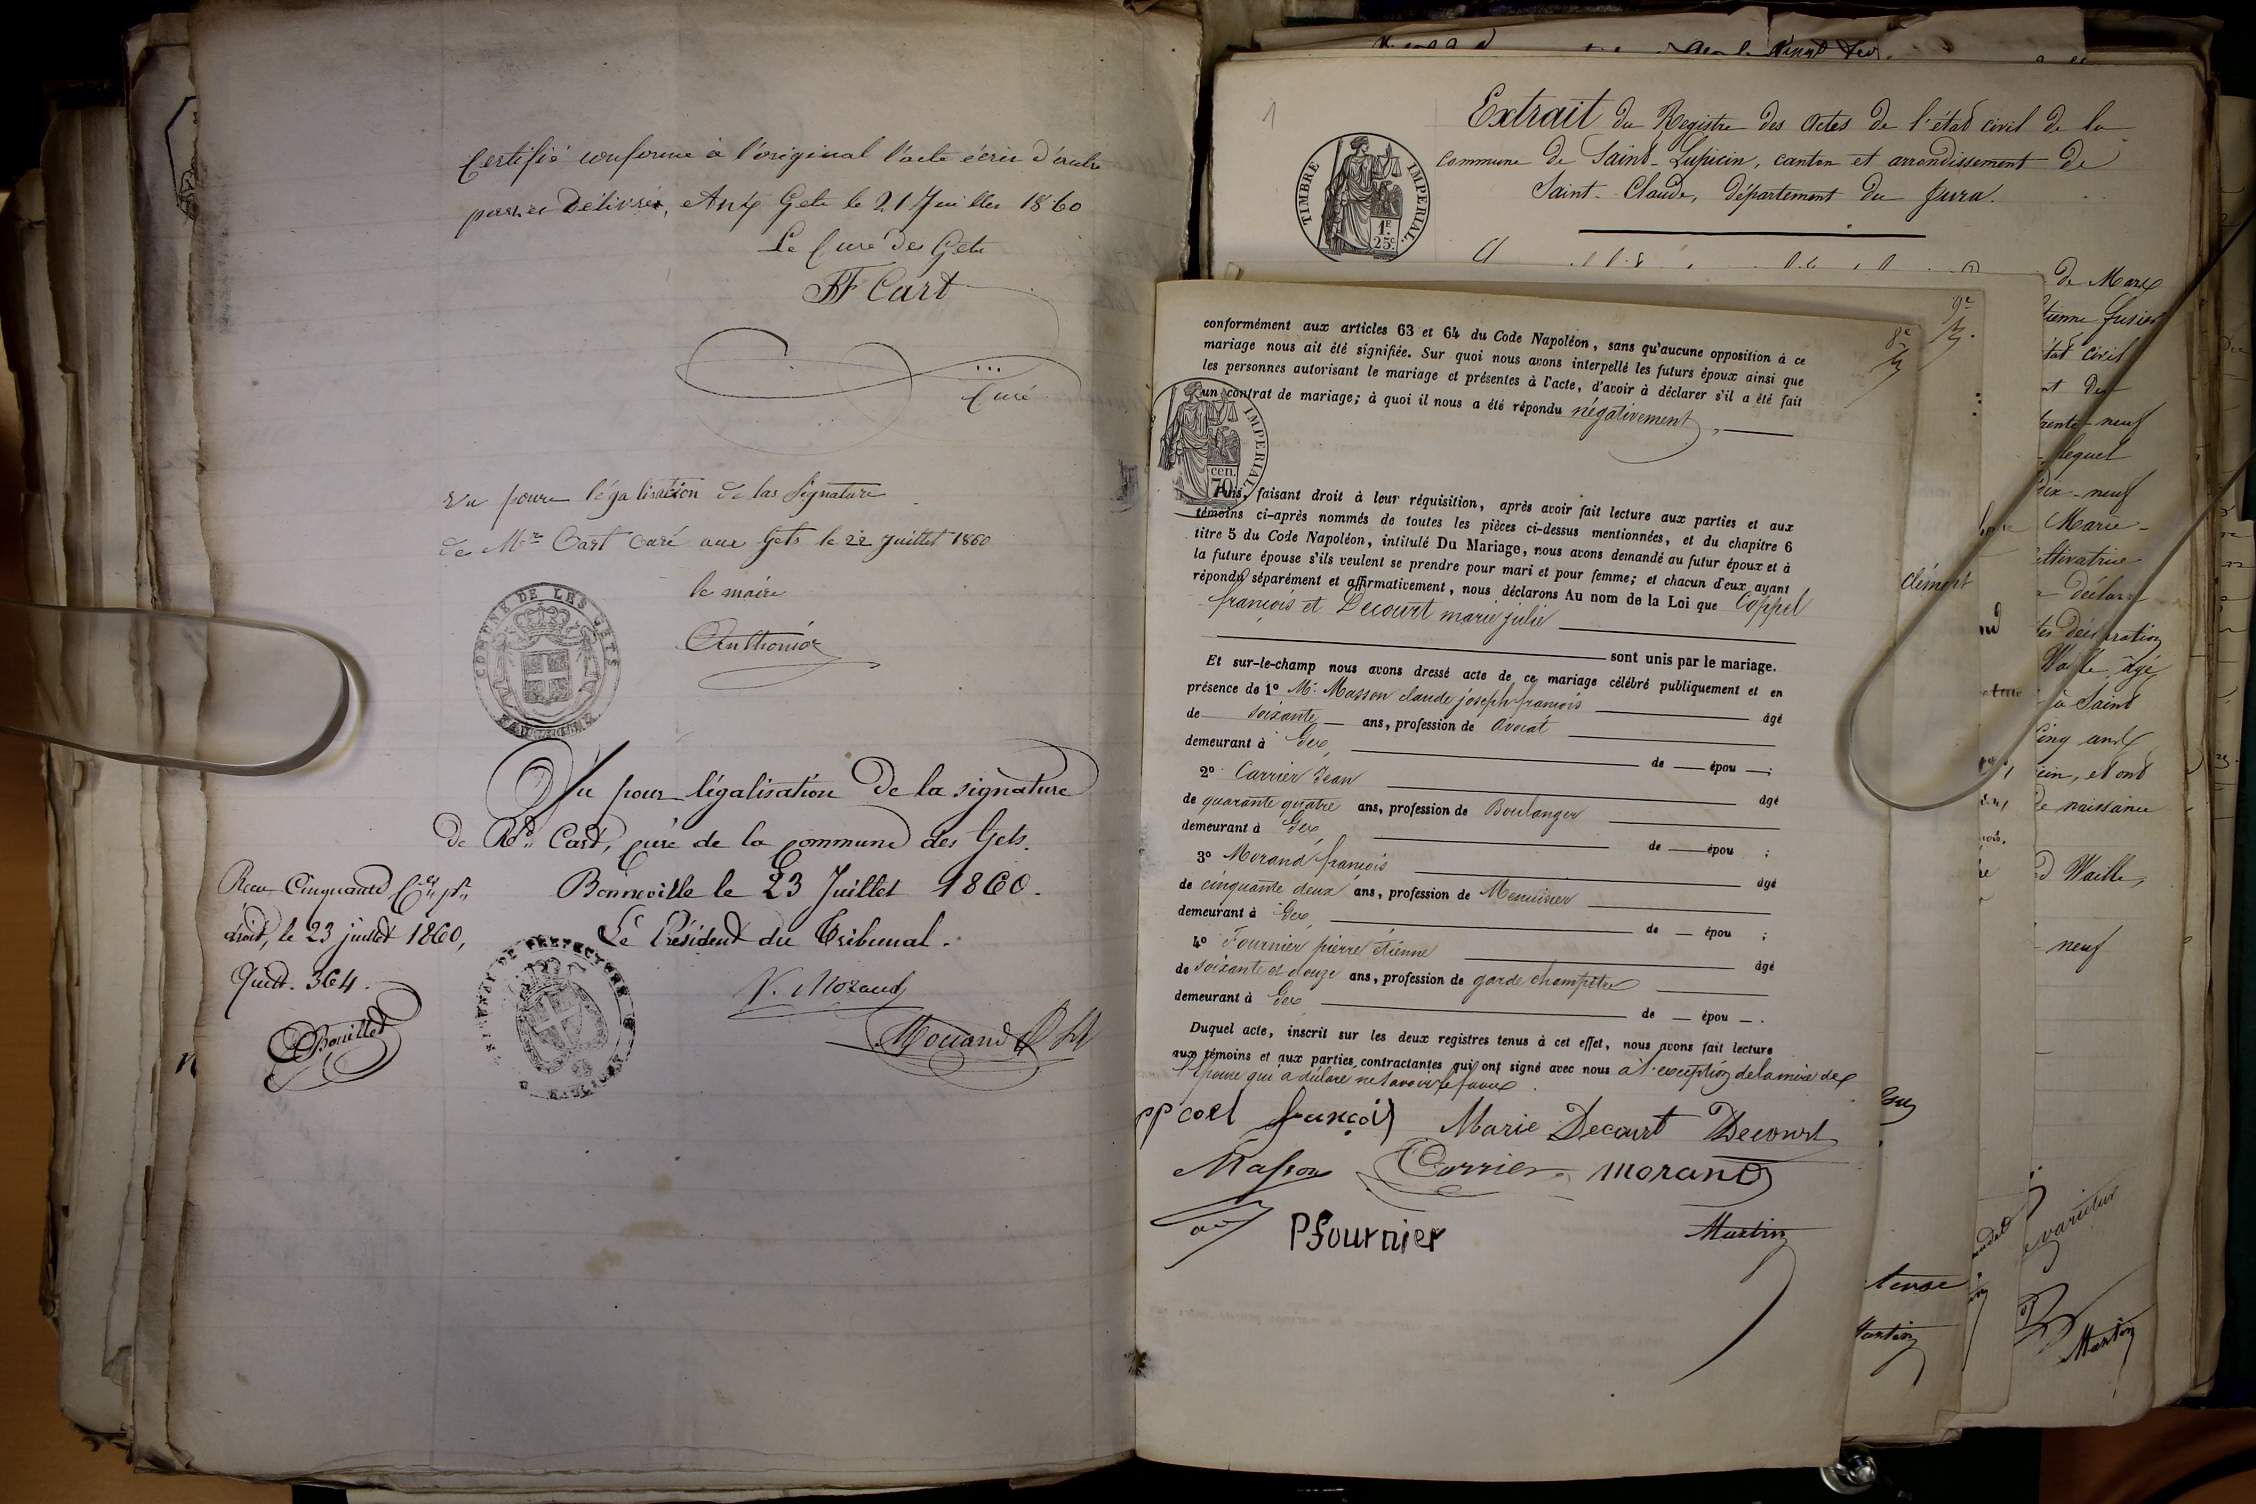 Certifié conforme à l'original l'acte écrit d'autre
part et Délivré, Aux Gets le 21 Juillet 1860
Le Curé des Gets
FF Cart
Curé
Vu pour légalisation de la Signature
de Mr Cart Curé aux Gets le 22 Juillet 1860
le maire
Anthonioz
COMMUNE DE LES GETS
Vu pour légalisation de la signature
de Rd Cart, curé de la commune des Gets.
Bonneville le 23 Juillet 1860.
Le Président du Tribunal.
Reçu Cinquante
droit, le 23 juillet 1860,
Quitt. 364.
Bouillet
1
Extrait du Registre des Actes de l'état civil de la
commune de Saint-Lupicin, canton et arrondissement de
Saint-Claude, département du Jura.
TIMBRE IMPERIAL.
1F
25c
de Marie
état civil
trente-neuf
lequel
dix-neuf
Marie-
cultivatrice
a déclaré
Waille, âgé
à Saint
cinq ans
de naissance
Waille,
neuf
ne varietur
Martin
9e
8e
Clément
Martin
conformément aux articles 63 et 64 du Code Napoléon, sans qu'aucune opposition à ce
mariage nous ait été signifiée. Sur quoi nous avons interpellé les futurs époux ainsi que
les personnes autorisant le mariage et présentes à l'acte, d'avoir à déclarer s'il a été fait
un contrat de mariage; à quoi il nous a été répondu négativement,
IMPERIAL.
cen.
70
Puis, faisant droit à leur réquisition, après avoir fait lecture aux parties et aux
témoins ci-après nommés de toutes les pièces ci-dessus mentionnées, et du chapitre 6
titre 5 du Code Napoléon, intitulé Du Mariage, nous avons demandé au futur époux et à
la future épouse s'ils veulent se prendre pour mari et pour femme; et chacun d'eux ayant
répondu séparément et affirmativement, nous déclarons Au nom de la Loi que Coppel
françois et Decourt marie julie
sont unis par le mariage.
Et sur-le-champ nous avons dressé acte de ce mariage célébré publiquement et en
présence de 1o Mr Masson claude joseph francois âgé
de soixante ans, profession de avocat
demeurant à Gex de épou ;
2o Carrier Jean âgé
de quarante quatre ans, profession de Boulanger
demeurant à Gex de épou ;
3o Morand françois âgé
de cinquante deux ans, profession de Menuisier
demeurant à Gex de épou ;
4o Fournier pierre étienne âgé
de soixante et douze ans, profession de garde champêtre
demeurant à Gex de épou .
Duquel acte, inscrit sur les deux registres tenus à cet effet, nous avons fait lecture
aux témoins et aux parties contractantes qui ont signé avec nous à l'exception de la mère de
l'épouse qui a déclaré ne savoir le faire.
françois Marie Decourt Decourt
Masson Carrier MORAND
av
P fournier Martin